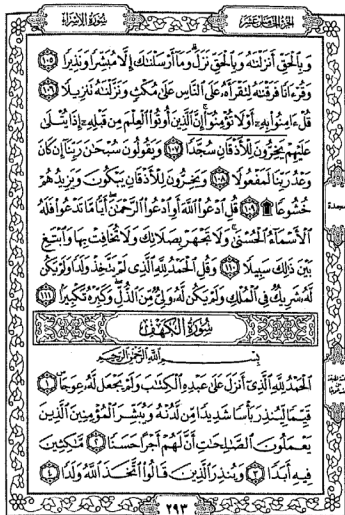 سُورَةُ الإِسْرَاءِ الجُزْءُ الخَامِسَ عَشَرَ
وَبِالْحَقِّ أَنزَلْنَاهُ وَبِالْحَقِّ نَزَلَ وَمَا أَرْسَلْنَاكَ إِلَّا مُبَشِّرًا وَنَذِيرًا ١٠٥
وَقُرْءَانًا فَرَقْنَاهُ لِتَقْرَأَهُ عَلَى النَّاسِ عَلَىٰ مُكْثٍ وَنَزَّلْنَاهُ تَنزِيلًا ١٠٦
قُلْ ءَامِنُوا بِهِ أَوْ لَا تُؤْمِنُوا إِنَّ الَّذِينَ أُوتُوا الْعِلْمَ مِن قَبْلِهِ إِذَا يُتْلَىٰ
عَلَيْهِمْ يَخِرُّونَ لِلْأَذْقَانِ سُجَّدًا ١٠٧ وَيَقُولُونَ سُبْحَانَ رَبِّنَا إِن كَانَ
وَعْدُ رَبِّنَا لَمَفْعُولًا ١٠٨ وَيَخِرُّونَ لِلْأَذْقَانِ يَبْكُونَ وَيَزِيدُهُمْ
خُشُوعًا ۩ ١٠٩ قُلِ ادْعُوا اللَّهَ أَوِ ادْعُوا الرَّحْمَٰنَ أَيًّا مَّا تَدْعُوا فَلَهُ
الْأَسْمَاءُ الْحُسْنَىٰ وَلَا تَجْهَرْ بِصَلَاتِكَ وَلَا تُخَافِتْ بِهَا وَابْتَغِ
بَيْنَ ذَٰلِكَ سَبِيلًا ١١٠ وَقُلِ الْحَمْدُ لِلَّهِ الَّذِي لَمْ يَتَّخِذْ وَلَدًا وَلَمْ يَكُن
لَّهُ شَرِيكٌ فِي الْمُلْكِ وَلَمْ يَكُن لَّهُ وَلِيٌّ مِّنَ الذُّلِّ وَكَبِّرْهُ تَكْبِيرًا ١١١
سُورَةُ الكَهْفِ
بِسْمِ اللَّهِ الرَّحْمَٰنِ الرَّحِيمِ
الْحَمْدُ لِلَّهِ الَّذِي أَنزَلَ عَلَىٰ عَبْدِهِ الْكِتَابَ وَلَمْ يَجْعَل لَّهُ عِوَجًا ١
قَيِّمًا لِّيُنذِرَ بَأْسًا شَدِيدًا مِّن لَّدُنْهُ وَيُبَشِّرَ الْمُؤْمِنِينَ الَّذِينَ
يَعْمَلُونَ الصَّالِحَاتِ أَنَّ لَهُمْ أَجْرًا حَسَنًا ٢ مَّاكِثِينَ
فِيهِ أَبَدًا ٣ وَيُنذِرَ الَّذِينَ قَالُوا اتَّخَذَ اللَّهُ وَلَدًا ٤
سجدة
٢٩٣